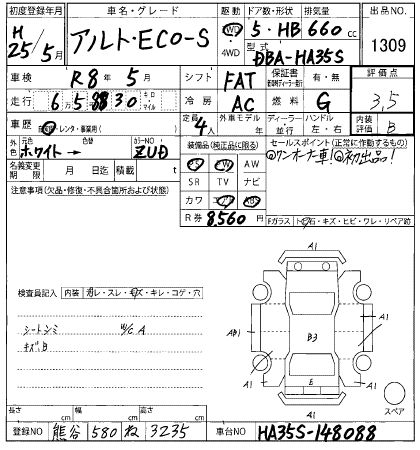 初度登録年月 車名・グレード 駆動 ドア数・形状 排気量 出品NO.
H 25/5月 アルト・ECO-S 2WD 4WD 5・HB 660cc 1309
型式 DBA-HA35S
車検 R8年5月 シフト FAT 保証書 有・無 評価点 3.5
走行 キロ マイル 冷房 AC 燃料 G
車歴 レンタ・事業用( ) 定員 4人 外車モデル ディーラー・並行 ハンドル 左・右 内装評価 B
外色 元色 ホワイト→ 色替 カラーNO ZUD 装備品(純正品に限る) セールスポイント(正常に作動するもの)
◎ワンオーナー車!◎初出品!
名義変更期限 月 日迄 積載 t PS PW AW
SR TV ナビ
注意事項(欠品・修復・不具合箇所および状態) カワ エアB ABS
R券 8,560円 Fガラス トビ石・キズ・ヒビ・ワレ・リペア跡
A1
A1
検査員記入 内装 ヨゴレ・スレ・キズ・キレ・コゲ・穴
シートシミ W/C A
キズ、B
AB1
B3
A1
E
A1
スペア
長さ cm 幅 cm 高さ cm
登録NO 熊谷 580 ね 3235 車台NO HA35S-148088